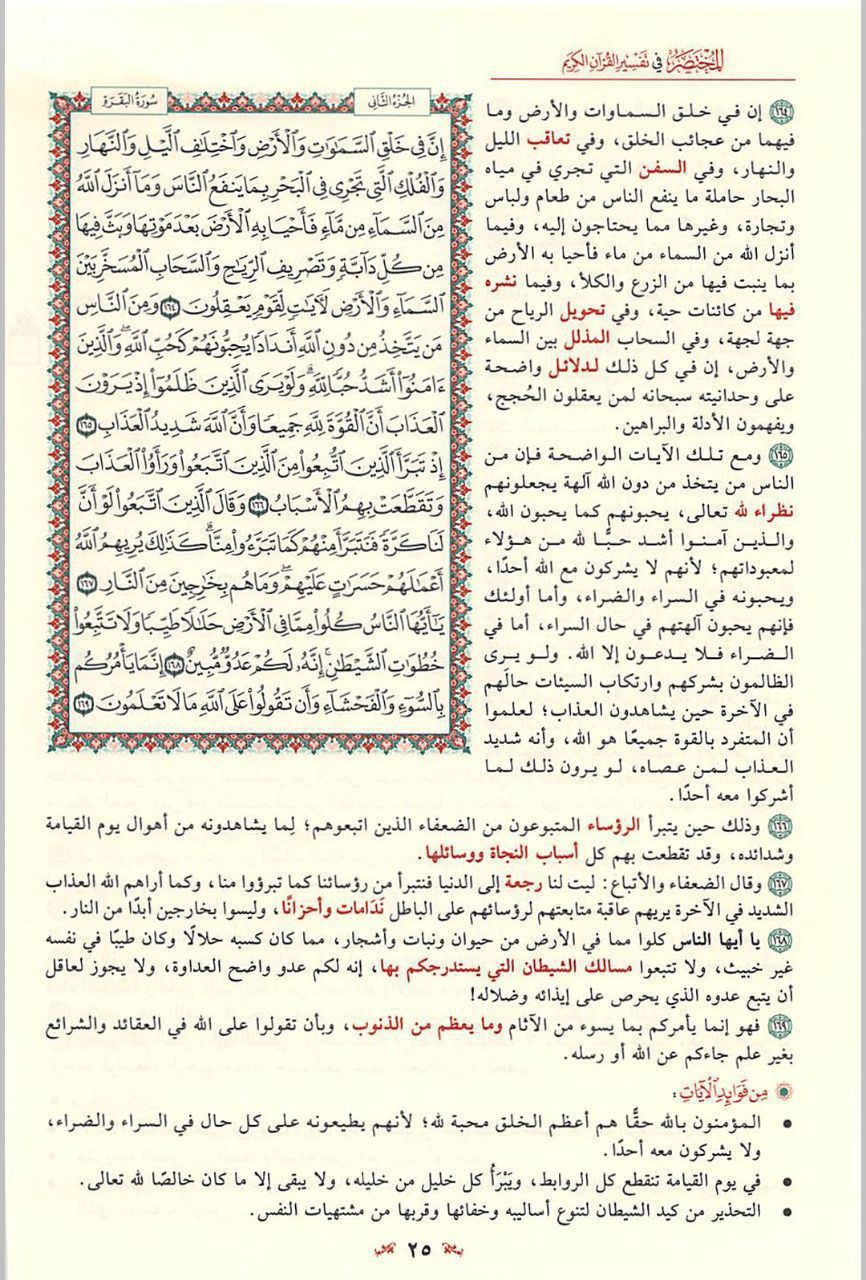 المختصر في تفسير القرآن الكريم
سورة البقرة
الجزء الثاني
إِنَّ فِي خَلْقِ السَّمَٰوَٰتِ وَالْأَرْضِ وَاخْتِلَٰفِ الَّيْلِ وَالنَّهَارِ
وَالْفُلْكِ الَّتِي تَجْرِي فِي الْبَحْرِ بِمَا يَنفَعُ النَّاسَ وَمَا أَنزَلَ اللَّهُ
مِنَ السَّمَاءِ مِن مَّاءٍ فَأَحْيَا بِهِ الْأَرْضَ بَعْدَ مَوْتِهَا وَبَثَّ فِيهَا
مِن كُلِّ دَابَّةٍ وَتَصْرِيفِ الرِّيَٰحِ وَالسَّحَابِ الْمُسَخَّرِ بَيْنَ
السَّمَاءِ وَالْأَرْضِ لَءَايَٰتٍ لِّقَوْمٍ يَعْقِلُونَ ١٦٤ وَمِنَ النَّاسِ
مَن يَتَّخِذُ مِن دُونِ اللَّهِ أَندَادًا يُحِبُّونَهُمْ كَحُبِّ اللَّهِ وَالَّذِينَ
ءَامَنُوا أَشَدُّ حُبًّا لِّلَّهِ وَلَوْ يَرَى الَّذِينَ ظَلَمُوا إِذْ يَرَوْنَ
الْعَذَابَ أَنَّ الْقُوَّةَ لِلَّهِ جَمِيعًا وَأَنَّ اللَّهَ شَدِيدُ الْعَذَابِ ١٦٥
إِذْ تَبَرَّأَ الَّذِينَ اتُّبِعُوا مِنَ الَّذِينَ اتَّبَعُوا وَرَأَوُا الْعَذَابَ
وَتَقَطَّعَتْ بِهِمُ الْأَسْبَابُ ١٦٦ وَقَالَ الَّذِينَ اتَّبَعُوا لَوْ أَنَّ
لَنَا كَرَّةً فَنَتَبَرَّأَ مِنْهُمْ كَمَا تَبَرَّءُوا مِنَّا كَذَٰلِكَ يُرِيهِمُ اللَّهُ
أَعْمَٰلَهُمْ حَسَرَٰتٍ عَلَيْهِمْ وَمَا هُم بِخَٰرِجِينَ مِنَ النَّارِ ١٦٧
يَٰأَيُّهَا النَّاسُ كُلُوا مِمَّا فِي الْأَرْضِ حَلَٰلًا طَيِّبًا وَلَا تَتَّبِعُوا
خُطُوَٰتِ الشَّيْطَٰنِ إِنَّهُ لَكُمْ عَدُوٌّ مُّبِينٌ ١٦٨ إِنَّمَا يَأْمُرُكُم
بِالسُّوءِ وَالْفَحْشَاءِ وَأَن تَقُولُوا عَلَى اللَّهِ مَا لَا تَعْلَمُونَ ١٦٩
١٦٤ إن في خلق السماوات والأرض وما
فيهما من عجائب الخلق، وفي تعاقب الليل
والنهار، وفي السفن التي تجري في مياه
البحار حاملة ما ينفع الناس من طعام ولباس
وتجارة، وغيرها مما يحتاجون إليه، وفيما
أنزل الله من السماء من ماء فأحيا به الأرض
بما ينبت فيها من الزرع والكلأ، وفيما نشره
فيها من كائنات حية، وفي تحويل الرياح من
جهة لجهة، وفي السحاب المذلل بين السماء
والأرض، إن في كل ذلك لدلائل واضحة
على وحدانيته سبحانه لمن يعقلون الحُجج،
ويفهمون الأدلة والبراهين.
١٦٥ ومع تلك الآيات الواضحة فإن من
الناس من يتخذ من دون الله آلهة يجعلونهم
نظراء لله تعالى، يحبونهم كما يحبون الله،
والذين آمنوا أشد حبًّا لله من هؤلاء
لمعبوداتهم؛ لأنهم لا يشركون مع الله أحدًا،
ويحبونه في السراء والضراء، وأما أولئك
فإنهم يحبون آلهتهم في حال السراء، أما في
الضراء فلا يدعون إلا الله. ولو يرى
الظالمون بشركهم وارتكاب السيئات حالَهم
في الآخرة حين يشاهدون العذاب؛ لعلموا
أن المتفرد بالقوة جميعًا هو الله، وأنه شديد
العذاب لمن عصاه، لو يرون ذلك لما
أشركوا معه أحدًا.
١٦٦ وذلك حين يتبرأ الرؤساء المتبوعون من الضعفاء الذين اتبعوهم؛ لِما يشاهدونه من أهوال يوم القيامة
وشدائده، وقد تقطعت بهم كل أسباب النجاة ووسائلها.
١٦٧ وقال الضعفاء والأتباع: ليت لنا رجعة إلى الدنيا فنتبرأ من رؤسائنا كما تبرؤوا منا، وكما أراهم الله العذاب
الشديد في الآخرة يريهم عاقبة متابعتهم لرؤسائهم على الباطل نَدَامات وأحزانًا، وليسوا بخارجين أبدًا من النار.
١٦٨ يا أيها الناس كلوا مما في الأرض من حيوان ونبات وأشجار، مما كان كسبه حلالًا وكان طيبًا في نفسه
غير خبيث، ولا تتبعوا مسالك الشيطان التي يستدرجكم بها، إنه لكم عدو واضح العداوة، ولا يجوز لعاقل
أن يتبع عدوه الذي يحرص على إيذائه وضلاله!
١٦٩ فهو إنما يأمركم بما يسوء من الآثام وما يعظم من الذنوب، وبأن تقولوا على الله في العقائد والشرائع
بغير علم جاءكم عن الله أو رسله.
من فوائد الآيات:
• المؤمنون بالله حقًّا هم أعظم الخلق محبة لله؛ لأنهم يطيعونه على كل حال في السراء والضراء،
ولا يشركون معه أحدًا.
• في يوم القيامة تنقطع كل الروابط، ويَبْرَأُ كل خليل من خليله، ولا يبقى إلا ما كان خالصًا لله تعالى.
• التحذير من كيد الشيطان لتنوع أساليبه وخفائها وقربها من مشتهيات النفس.
٢٥